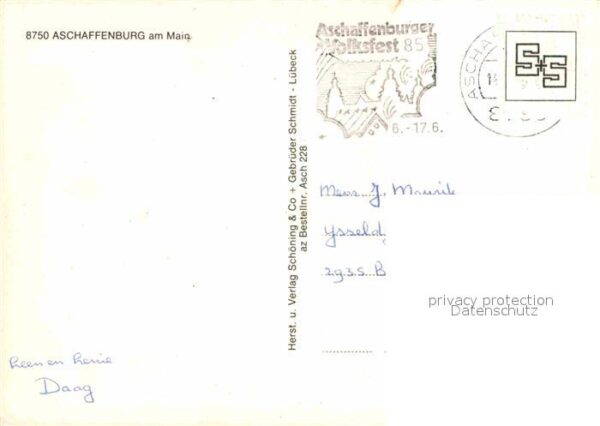 8750 ASCHAFFENBURG am Main
Aschaffenburger
Volksfest 85
6.-17.6.
ASCHA
S+S
Herst. u. Verlag Schöning & Co + Gebrüder Schmidt - Lübeck
az Bestellnr. Asch 228
J.
Ysseld
2935 B
privacy protection
Datenschutz
Leen en
Daag